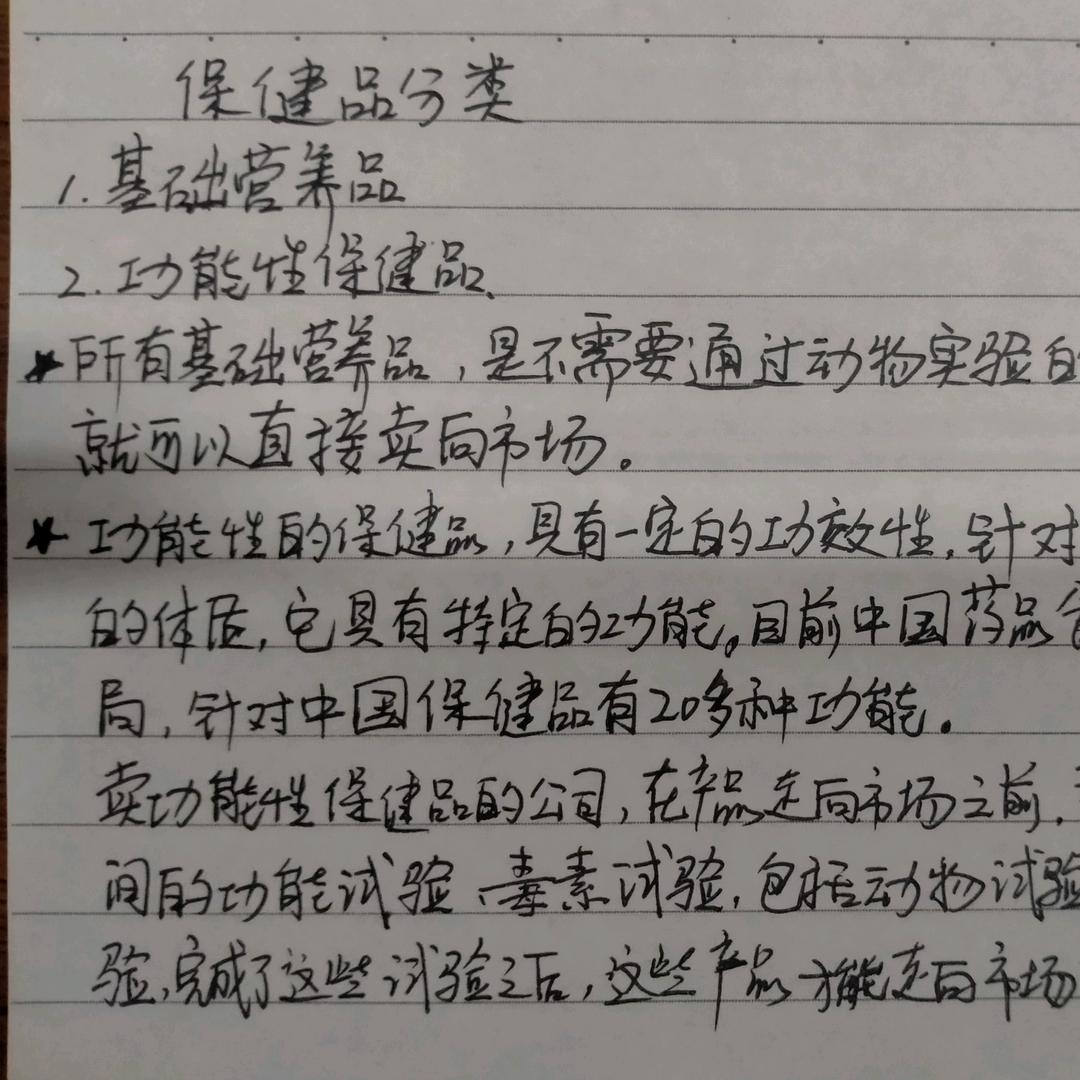 保健品分类
1.基础营养品
2.功能性保健品、
★所有基础营养品，是不需要通过动物实验的
就可以直接卖向市场。
★功能性的保健品，具有一定的功效性，针对
的体质，它具有特定的功能。目前中国药品
局，针对中国保健品有20多种功能。
卖功能性保健品的公司，在产品走向市场之前，
间的功能试验、毒素试验，包括动物试验
验，完成了这些试验之后，这些产品才能走向市场